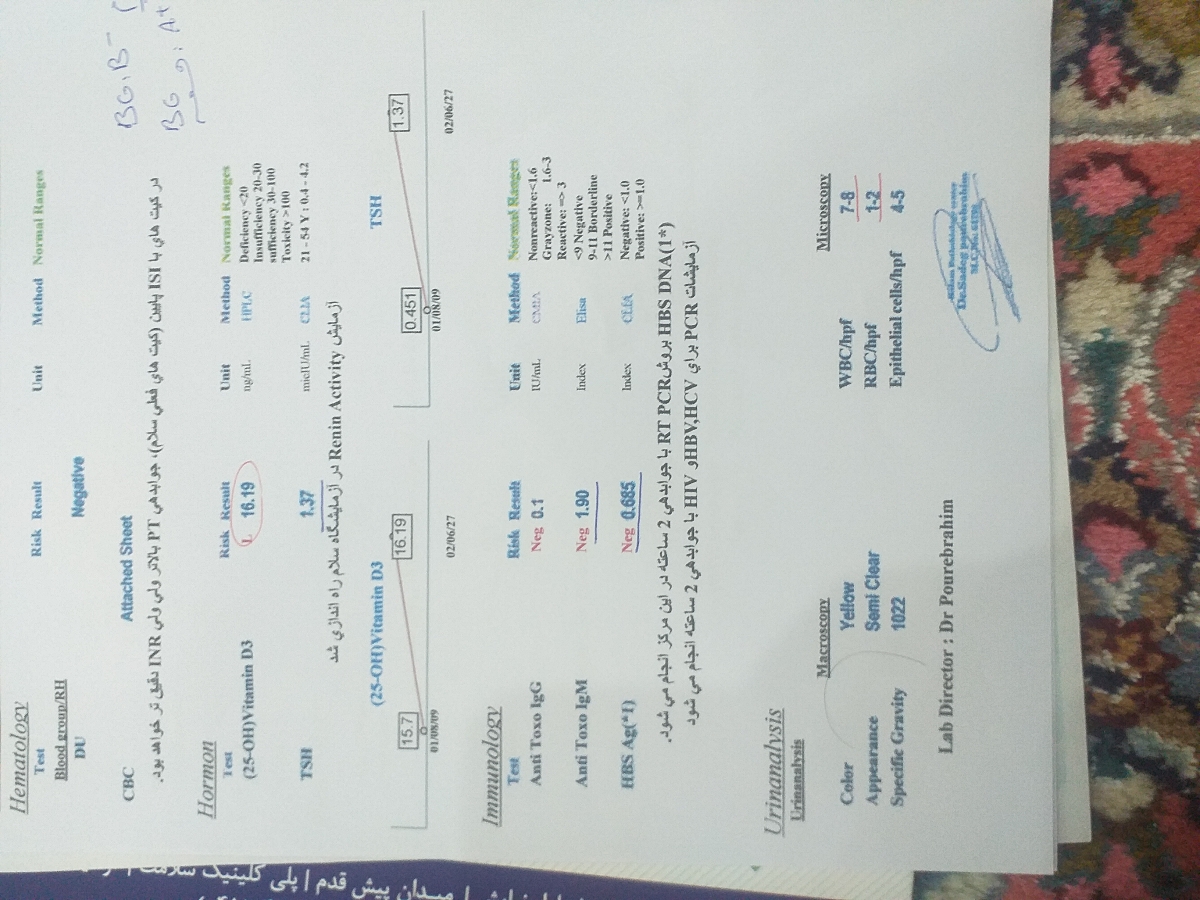 BG: B-
BG: A+
Hematology
Test Risk Result Unit Method Normal Ranges
Blood group/RH
DU Negative
CBC Attached Sheet
در کیت های با ISI پایین (کیت های فعلی سلام)، جوابدهی PT بالاتر ولی ولی INR دقیق تر خواهد بود.
Hormon
Test Risk Result Unit Method Normal Ranges
(25-OH)Vitamin D3 L 16.19 ng/mL HPLC Deficiency <20
Insufficiency 20-30
sufficiency 30-100
Toxicity >100
TSH 1.37 micIU/mL CLIA 21 - 54 Y : 0.4 - 4.2
آزمایش Renin Activity در آزمایشگاه سلام راه اندازی شد
(25-OH)Vitamin D3 TSH
15.7 16.19 0.451 1.37
01/08/09 02/06/27 01/08/09 02/06/27
Immunology
Test Risk Result Unit Method Normal Ranges
Anti Toxo IgG Neg 0.1 IU/mL CMIA Nonreactive:<1.6
Grayzone: 1.6-3
Reactive: => 3
Anti Toxo IgM Neg 1.90 Index Elisa <9 Negative
9-11 Borderline
>11 Positive
HBS Ag(*1) Neg 0.685 Index CLIA Negative: <1.0
Positive: >=1.0
(*1)HBS DNA بروش RT PCR با جوابدهی 2 ساعته در این مرکز انجام می شود.
آزمایشات PCR برای HBV,HCV و HIV با جوابدهی 2 ساعته انجام می شود
Urinanalysis
Urinanalysis
Macroscopy Microscopy
Color Yellow WBC/hpf 7-8
Appearance Semi Clear RBC/hpf 1-2
Specific Gravity 1022 Epithelial cells/hpf 4-5
Lab Director : Dr Pourebrahim
Dr.Sadeg pourebrahim
میدان پیش قدم | پلی کلینیک